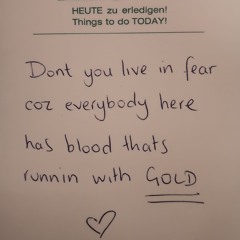 HEUTE zu erledigen!
Things to do TODAY!
Dont you live in fear
coz everybody here
has blood thats
runnin with GOLD